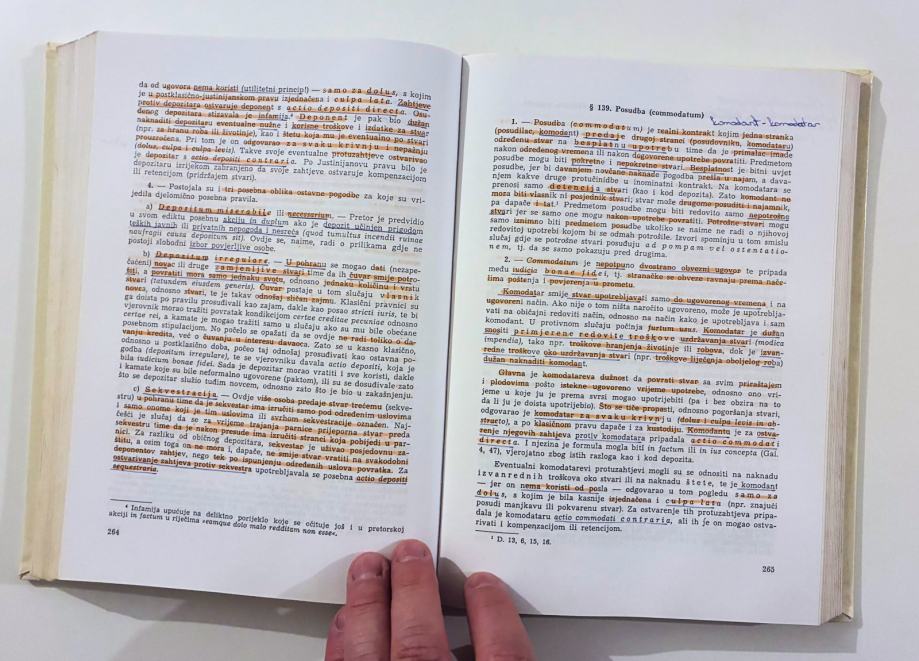 da od ugovora nema koristi (utilitetni princip!) — samo za dolus, s kojim
je u postklasično-justinijanskom pravu izjednačena i culpa lata. Zahtjeve
protiv depozitara ostvaruje deponent s actio depositi directa. Osu-
đenog depozitara stizavala je infamija.⁴ Deponent je pak bio dužan
naknaditi depozitaru eventualne nužne i korisne troškove i izdatke za stvar
(npr. za hranu roba ili životinje), kao i štetu koja mu je eventualno po stvari
prouzročena. Pri tom je on odgovarao za svaku krivnju i nepažnju
(dolus, culpa i culpa levis). Takve svoje eventualne protuzahtjeve ostvarivao
je depozitar s actio depositi contraria. Po Justinijanovu pravu bilo je
depozitaru izrijekom zabranjeno da svoje zahtjeve ostvaruje kompenzacijom
ili retencijom (pridržajem stvari).
4. — Postojala su i tri posebna oblika ostavne pogodbe za koje su vri-
jedila djelomično posebna pravila.
a) Depositum miserabile ili necessarium. — Pretor je predvidio
u svom ediktu posebnu akciju in duplum ako je depozit učinjen prigodom
teških javnih ili privatnih nepogoda i nesreća (quod tumultus incendii ruinae
naufragii causa depositum sit). Ovdje se, naime, radi o prilikama gdje ne
postoji slobodni izbor povjerljive osobe.
b) Depositum irregulare. — U pohranu se mogao dati (nezape-
čaćeni) novac ili druge zamjenljive stvari time da ih čuvar smije potro-
šiti, a povratiti mora samo jednaku svotu, odnosno jednaku količinu i vrstu
stvari (tantundem eiusdem generis). Čuvar postaje u tom slučaju vlasnik
novca, odnosno stvari, te je takav odnošaj sličan zajmu. Klasični pravnici su
ga doista po pravilu prosuđivali kao zajam, dakle kao posao stricti iuris, te bi
vjerovnik morao tražiti povratak kondikcijom certae creditae pecuniae odnosno
certae rei, a kamate je mogao tražiti samo u slučaju ako su mu bile obećane
posebnom stipulacijom. No počelo se opažati da se ovdje ne radi toliko o da-
vanju kredita, već o čuvanju u interesu davaoca. Zato se u kasno klasično,
odnosno u postklasično doba, počeo taj odnošaj prosuđivati kao ostavna po-
godba (depositum irregulare), te se vjerovniku davala actio depositi, koja je
bila iudicium bonae fidei. Sada je depozitar morao vratiti i sve koristi, dakle
i kamate koje su bile neformalno ugovorene (paktom), ili su se dosuđivale zato
što se depozitar služio tuđim novcem, odnosno zato što je bio u zakašnjenju.
c) Sekvestracija — Ovdje više osoba predaje stvar trećemu (sekve-
stru) u pohranu time da je sekvestar ima izručiti samo pod određenim uslovima
i samo onome koji je tim uslovima ili svrhom sekvestracije označen. Naj-
češći je slučaj da se za vrijeme trajanja parnice prijeporna stvar preda
sekvestru time da je nakon presude ima izručiti stranci koja pobijedi u par-
nici. Za razliku od običnog depozitara, sekvestar je uživao posjedovnu za-
štitu, a osim toga on ne mora i, dapače, ne smije stvar vratiti na svakodobni
deponentov zahtjev, nego tek po ispunjenju određenih uslova povratka. Za
ostvarivanje zahtjeva protiv sekvestra upotrebljavala se posebna actio depositi
sequestraria.
⁴ Infamija upućuje na deliktno porijeklo koje se očituje još i u pretorskoj
akciji in factum u riječima »eamque dolo malo redditam non esse«.
264
§ 139. Posudba (commodatum)
komodant - komodatar
1. — Posudba (commodatum) je realni kontrakt kojim jedna stranka
(posudilac, komodant) predaje drugoj stranci (posudovniku, komodataru)
određenu stvar na besplatnu upotrebu time da je primalac imade
nakon određenog vremena ili nakon dogovorene upotrebe povratiti. Predmetom
posudbe mogu biti pokretne i nepokretne stvari. Besplatnost je bitni uvjet
posudbe, jer bi davanjem novčane naknade pogodba prešla u najam, a dava-
njem kakve druge protučinidbe u inominatni kontrakt. Na komodatara se
prenosi samo detencija stvari (kao i kod depozita). Zato komodant ne
mora biti vlasnik ni posjednik stvari; stvar može drugome posuditi i najamnik,
pa dapače i tat.¹ Predmetom posudbe mogu biti redovito samo nepotrošne
stvari jer se samo one mogu nakon upotrebe povratiti. Potrošne stvari mogu
samo iznimno biti predmetom posudbe ukoliko se naime ne radi o njihovoj
redovitoj upotrebi kojom bi se odmah potrošile. Izvori spominju u tom smislu
slučaj gdje se potrošne stvari posuđuju ad pompam vel ostentatio-
nem, tj. da se samo pokazuju pred drugima.
2. — Commodatum je nepotpuno dvostrano obvezni ugovor te pripada
među iudicia bonae fidei, tj. stranačke se obveze ravnaju prema nače-
lima poštenja i povjerenja u prometu.
Komodatar smije stvar upotrebljavati samo do ugovorenog vremena i na
ugovoreni način. Ako nije o tom ništa naročito ugovoreno, može je upotreblja-
vati na običajni redoviti način, odnosno na način kako je upotrebljava i sam
komodant. U protivnom slučaju počinja furtum usus. Komodatar je dužan
snositi primjerene redovite troškove uzdržavanja stvari (modica
impendia), tako npr. troškove hranjenja životinje ili robova, dok je izvan-
redne troškove oko uzdržavanja stvari (npr. troškove liječenja oboljelog roba)
dužan naknaditi komodant.
Glavna je komodatareva dužnost da povrati stvar sa svim priraštajem
i plodovima pošto istekne ugovoreno vrijeme upotrebe, odnosno ono vri-
jeme u koje ju je prema svrsi mogao upotrijebiti (pa i bez obzira na to
da li ju je doista upotrijebio). Što se tiče propasti, odnosno pogoršanja stvari,
odgovarao je komodatar za svaku krivnju (dolus i culpa levis in ab-
stracto), a po klasičnom pravu dapače i za kustodiju. Komodantu je za ostva-
renje njegovih zahtjeva protiv komodatara pripadala actio commodati
directa. I njezina je formula mogla biti in factum ili in ius concepta (Gai.
4, 47), vjerojatno zbog istih razloga kao i kod depozita.
Eventualni komodatarevi protuzahtjevi mogli su se odnositi na naknadu
izvanrednih troškova oko stvari ili na naknadu štete, te je komodant
— jer on nema koristi od posla — odgovarao u tom pogledu samo za
dolus, s kojim je bila kasnije izjednačena i culpa lata (npr. znajući
posudi manjkavu ili pokvarenu stvar). Za ostvarenje tih protuzahtjeva pripa-
dala je komodataru actio commodati contraria, ali ih je on mogao ostva-
rivati i kompenzacijom ili retencijom.
¹ D. 13, 6, 15, 16.
265